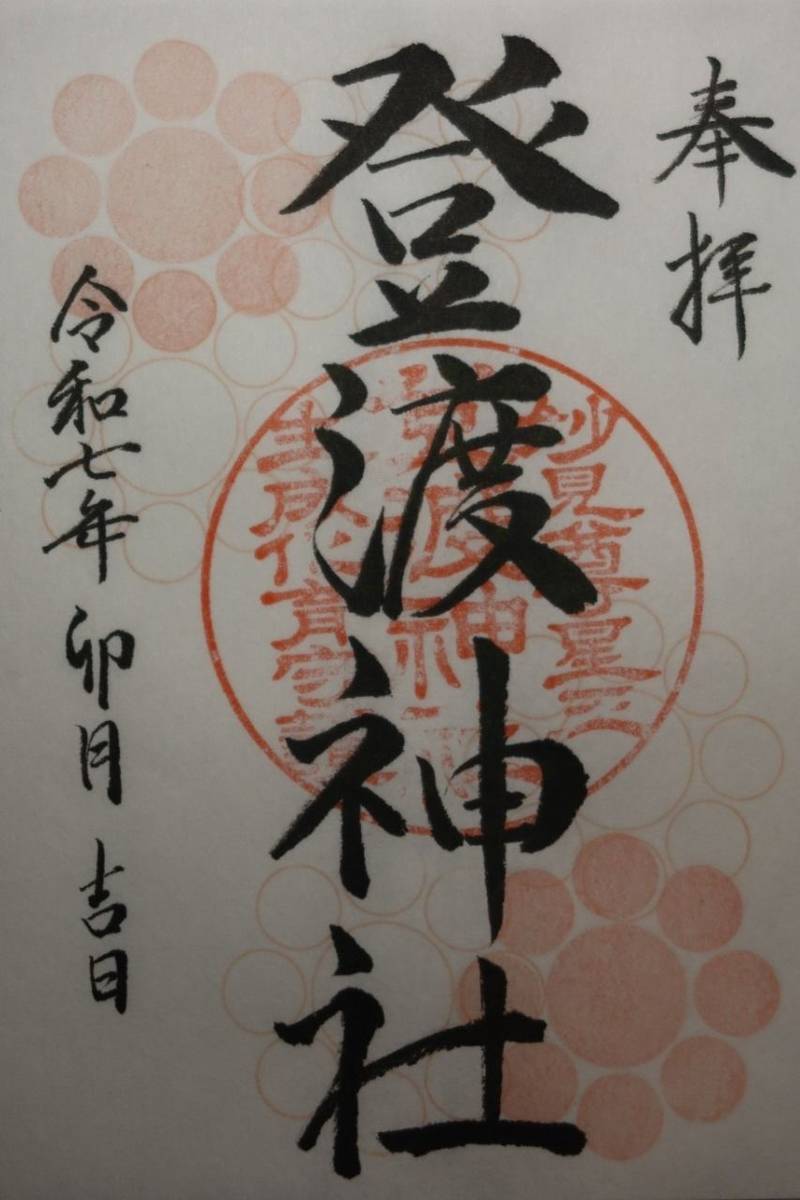 奉拝
登渡神社
妙見尊星王
登渡神社
令和七年 卯月 吉日